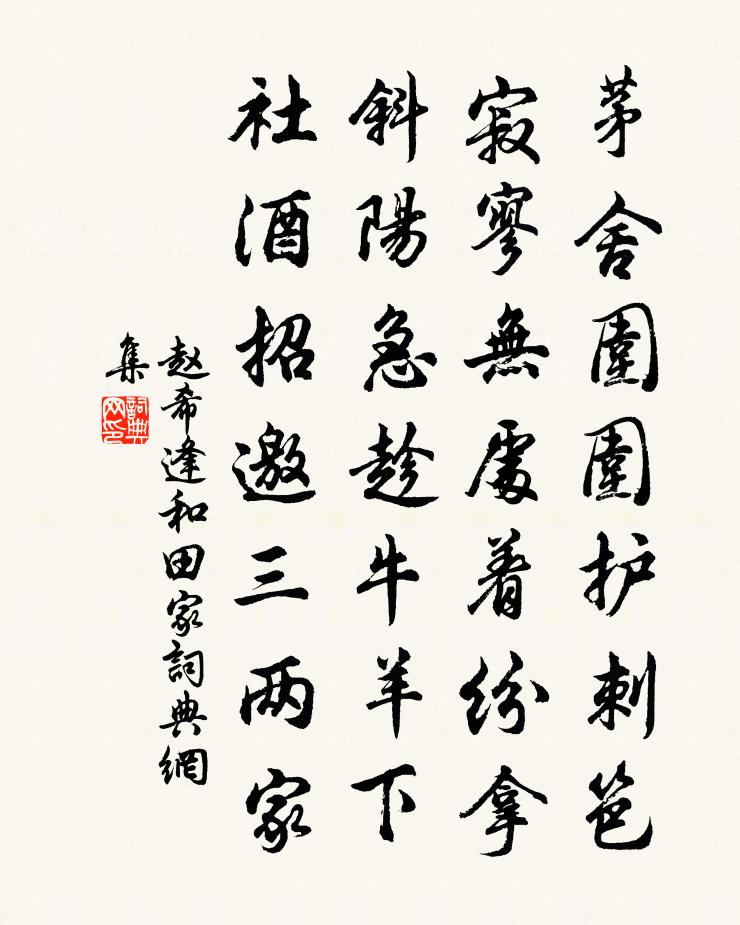 茅舍圍圍护刺笆
寂寥無處着纷拿
斜陽急趁牛羊下
社酒招邀三两家
赵希逢和田家詞典網
集
詞典
网印